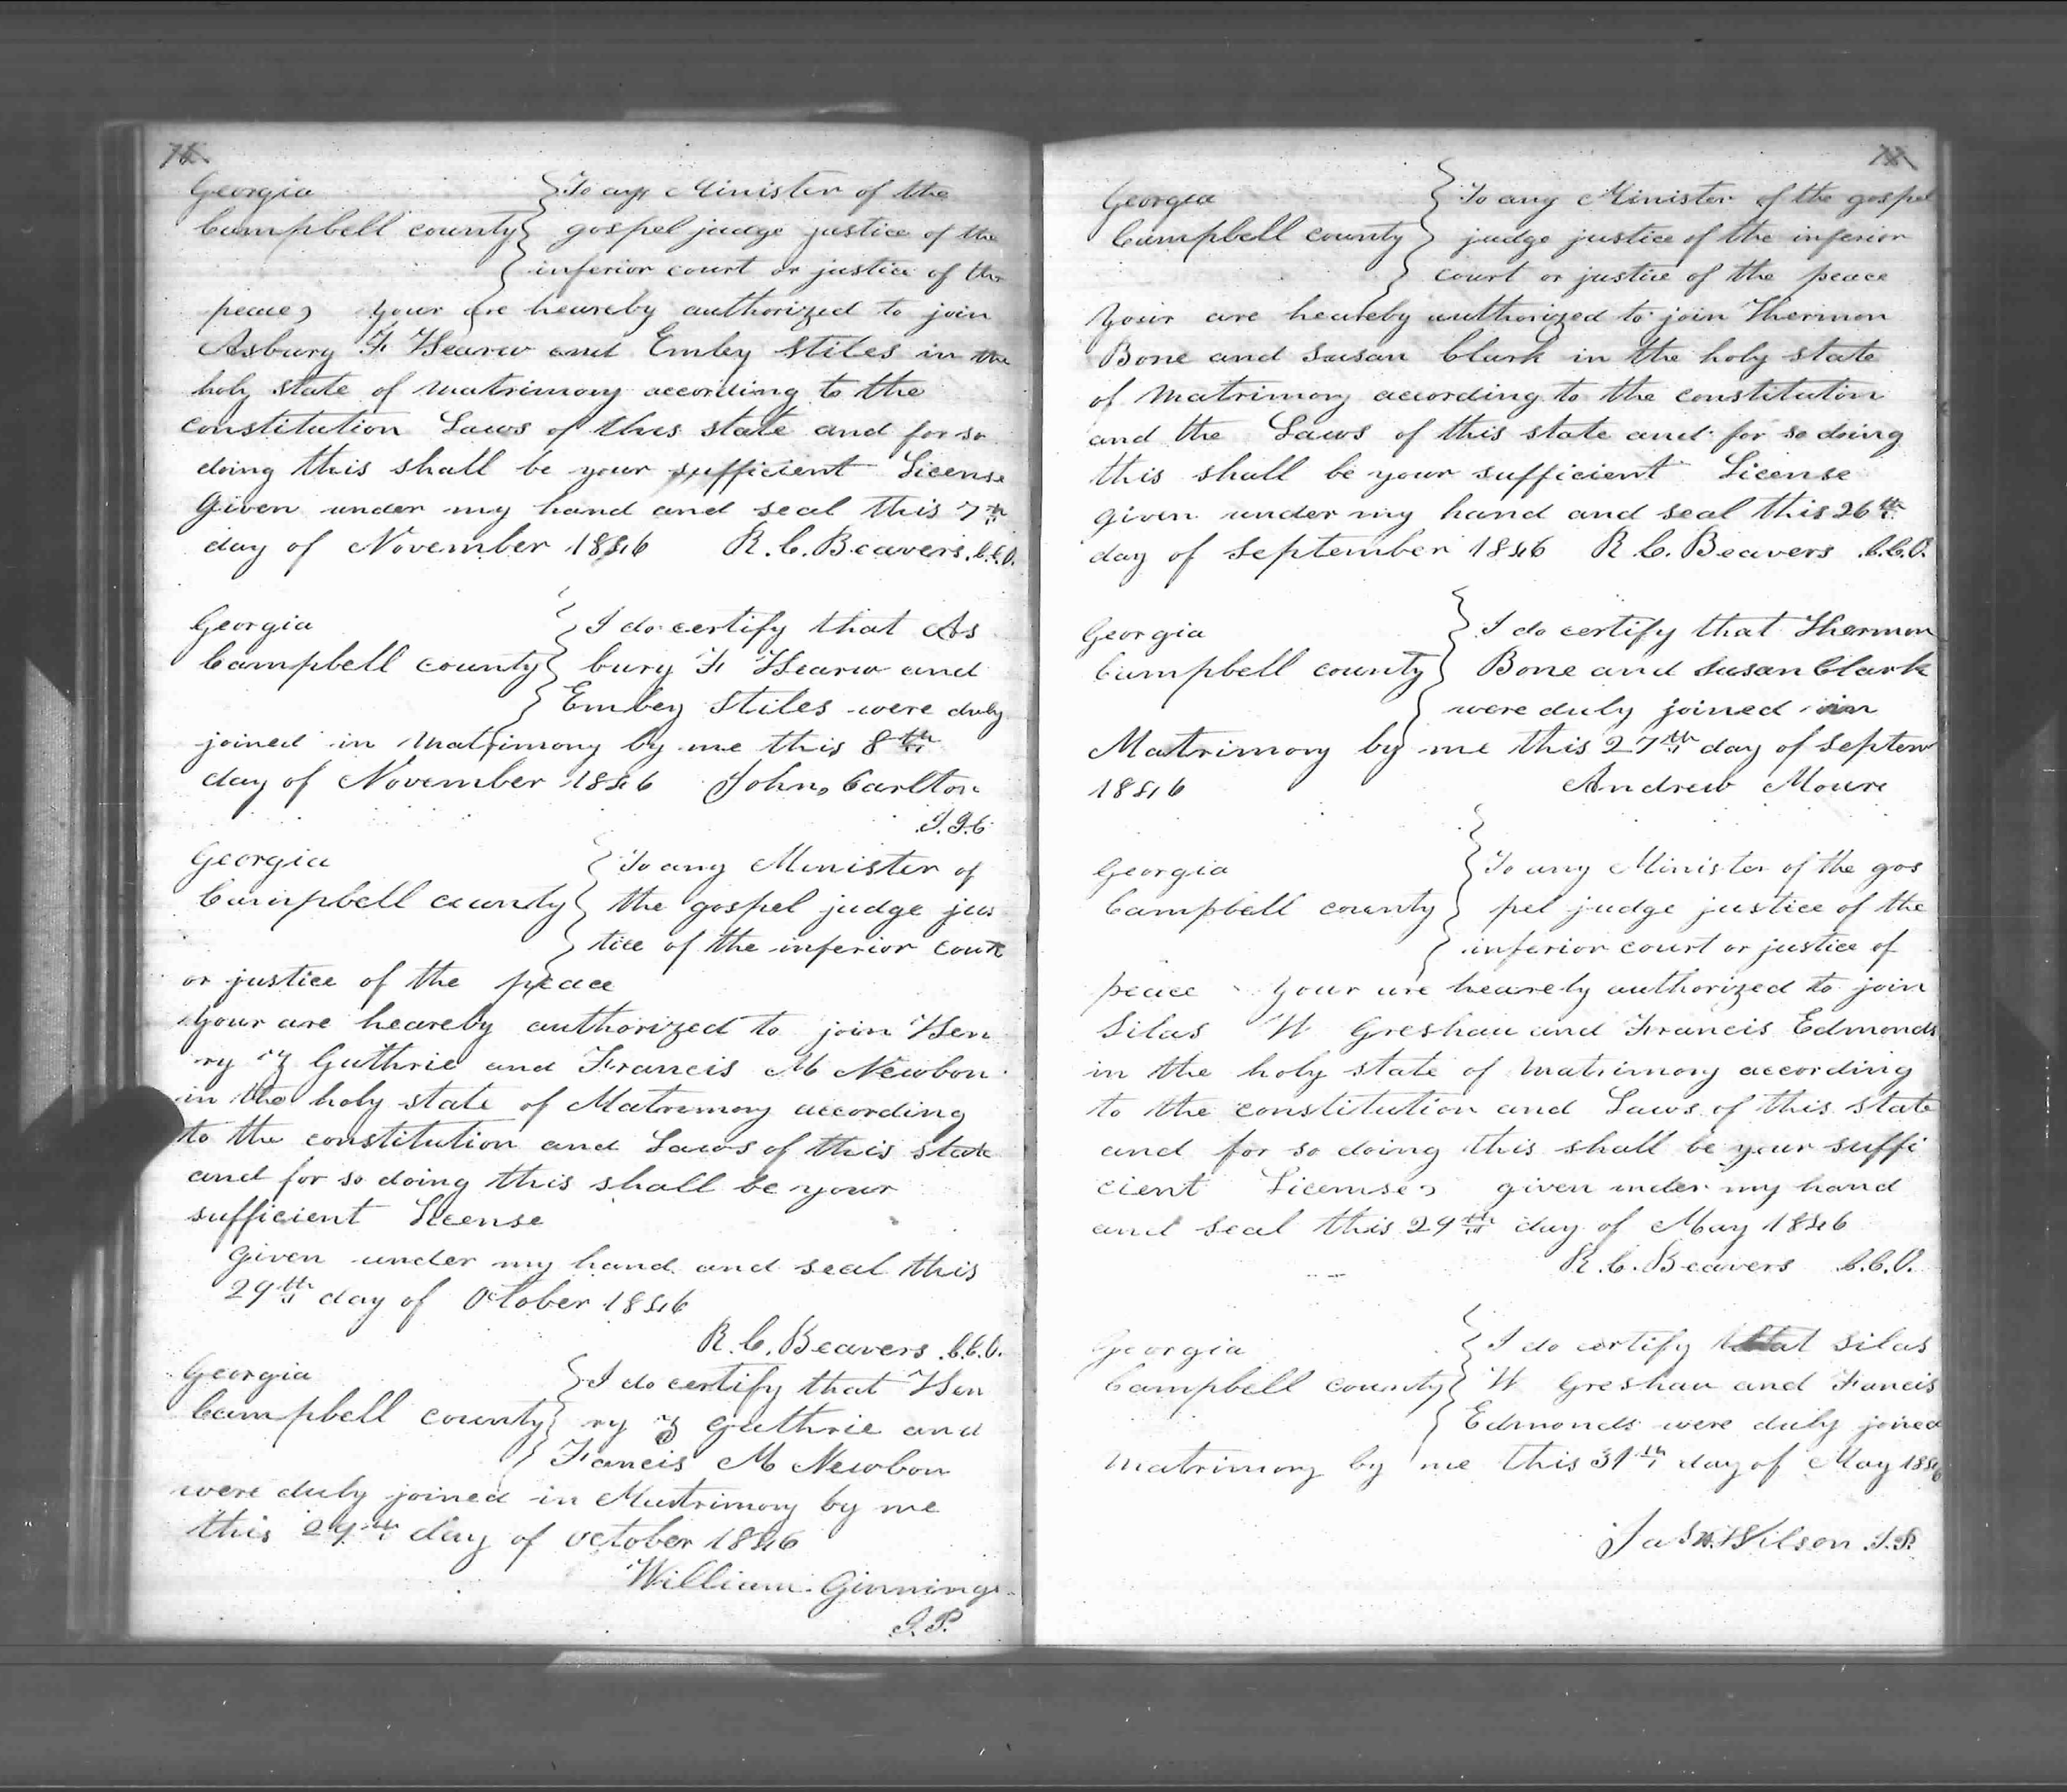 Georgia To any Minister of the
Campbell county gospel judge justice of the
inferior court or justice of the
peace, your are heareby authorized to join
Asbury F Hearw and Embey Stiles in the
holy state of matrimony according to the
constitution Laws of this state and for so
doing this shall be your sufficient License
Given under my hand and seal this 7th
day of November 1846 R. C. Beavers. C.C.O.
Georgia I do certify that As
Campbell county bury F Hearw and
Embey Stiles were duly
joined in Matrimony by me this 8th
day of November 1846 John, Carlton
J.J.C
Georgia To any Minister of
Campbell county the gospel judge jus
tice of the inferior court
or justice of the peace
your are heareby authorized to join Hen
ry Guthrie and Francis M Newbon
in the holy state of Matremony according
to the constitution and Laws of this state
and for so doing this shall be your
sufficient License
Given under my hand and seal this
29th day of October 1846
R. C. Beavers C.C.O.
Georgia I do certify that Hen
Campbell county ry Guthrie and
Francis M Newbon
were duly joined in Matrimony by me
this 29th day of october 1846
William Ginnings
J.P.
Georgia To any Minister of the gospel
Campbell county judge justice of the inferior
court or justice of the peace
your are heareby authorized to join Thermon
Bone and Susan Clark in the holy state
of Matrimony according to the constitution
and the Laws of this state and for so doing
this shall be your sufficient License
given under my hand and seal this 26th
day of September 1846 R C. Beavers C.C.O.
Georgia I do certify that Thermon
Campbell county Bone and Susan Clark
were duly joined in
Matrimony by me this 27th day of Septem
1846 Andrew Moure
Georgia To any Minister of the gos
Campbell county pel judge justice of the
inferior court or justice of
peace your are hearely authorized to join
Silas W Greshau and Francis Edmonds
in the holy state of matrimony according
to the constitution and Laws of this state
and for so doing this shall be your suffi
cient License, given under my hand
and seal this 29th day of May 1846
R. C. Beavers C.C.O.
Georgia I do certify that Silas
Campbell county W Greshau and Francis
Edmonds were duly joined
matrimony by me this 31th day of May 1846
Jas Wilson J.P.